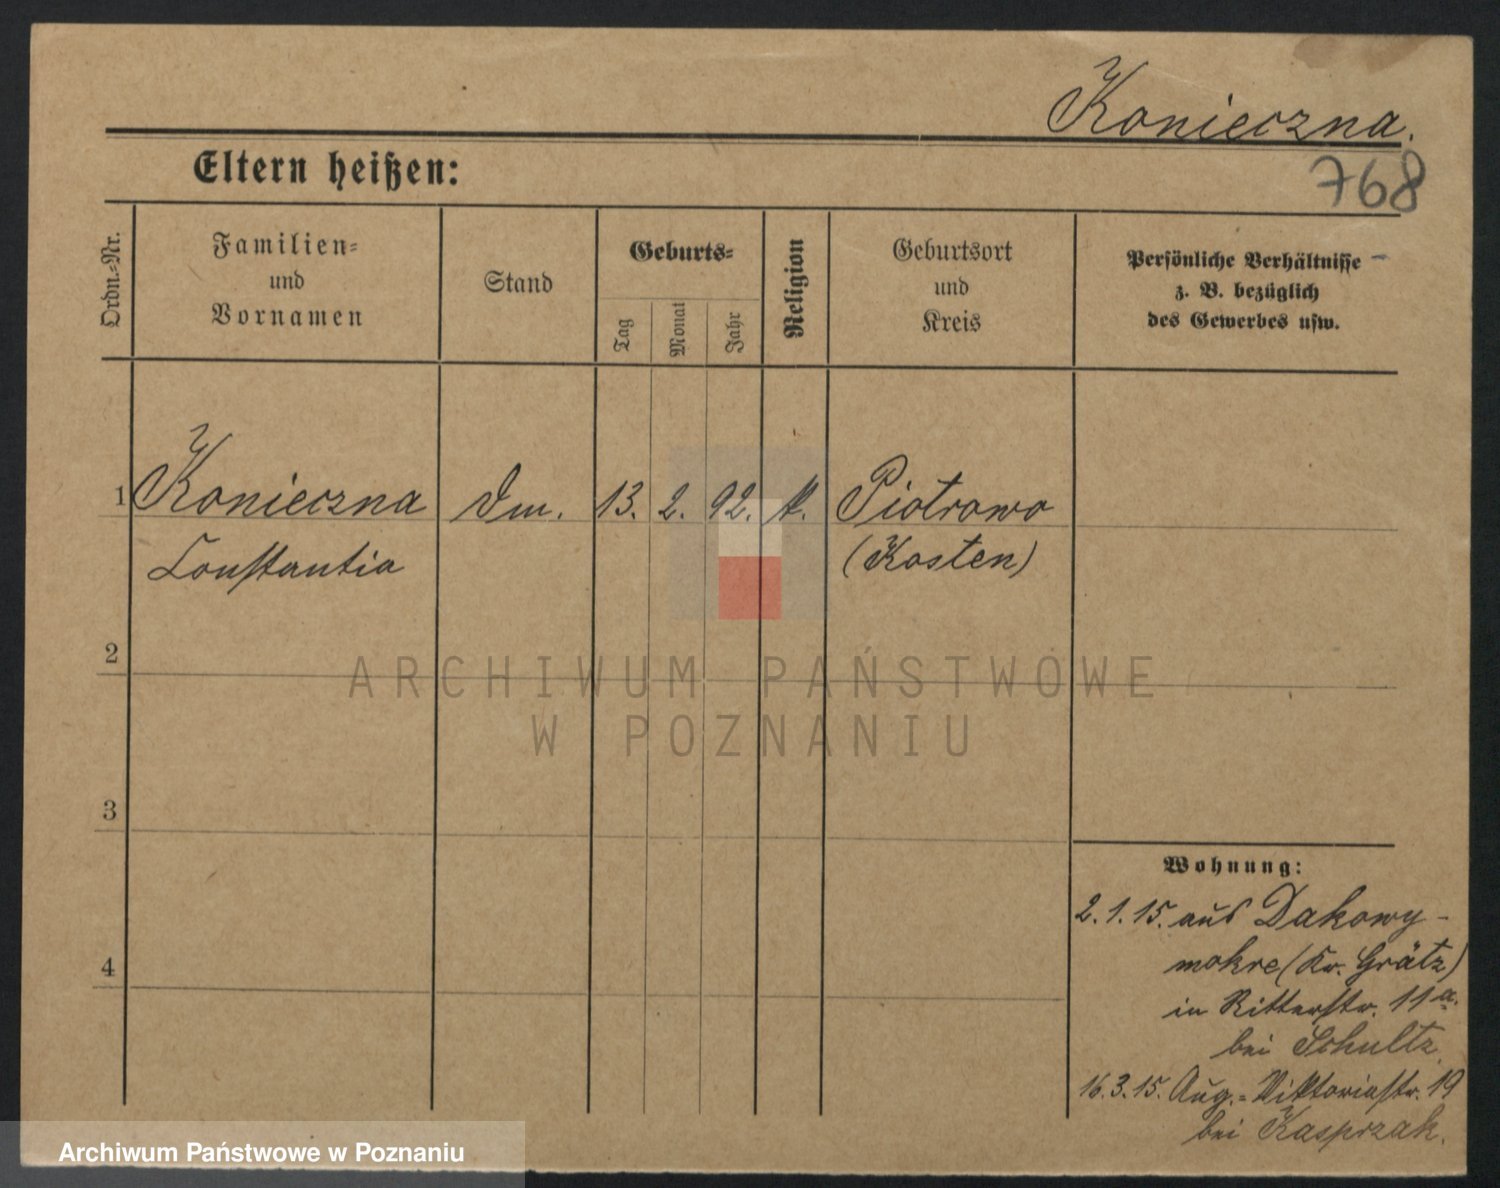 Konieczna.
768
Eltern heißen:
Ordn.=Nr.
Familien=
und
Vornamen
Stand
Geburts=
Tag
Monat
Jahr
Religion
Geburtsort
und
Kreis
Persönliche Verhältnisse
z. B. bezüglich
des Gewerbes usw.
1 Konieczna 13. 2. 92. k. Piotrowo
Constantia (Kosten)
2
3
4
Wohnung:
2.1.15. aus Dakowy-
mokre (Kr. Grätz)
in Ritterstr. 11a.
bei Schultz.
16.3.15. Aug.=Viktoriastr. 19
bei Kasprzak.
ARCHIWUM PAŃSTWOWE
W POZNANIU
Archiwum Państwowe w Poznaniu